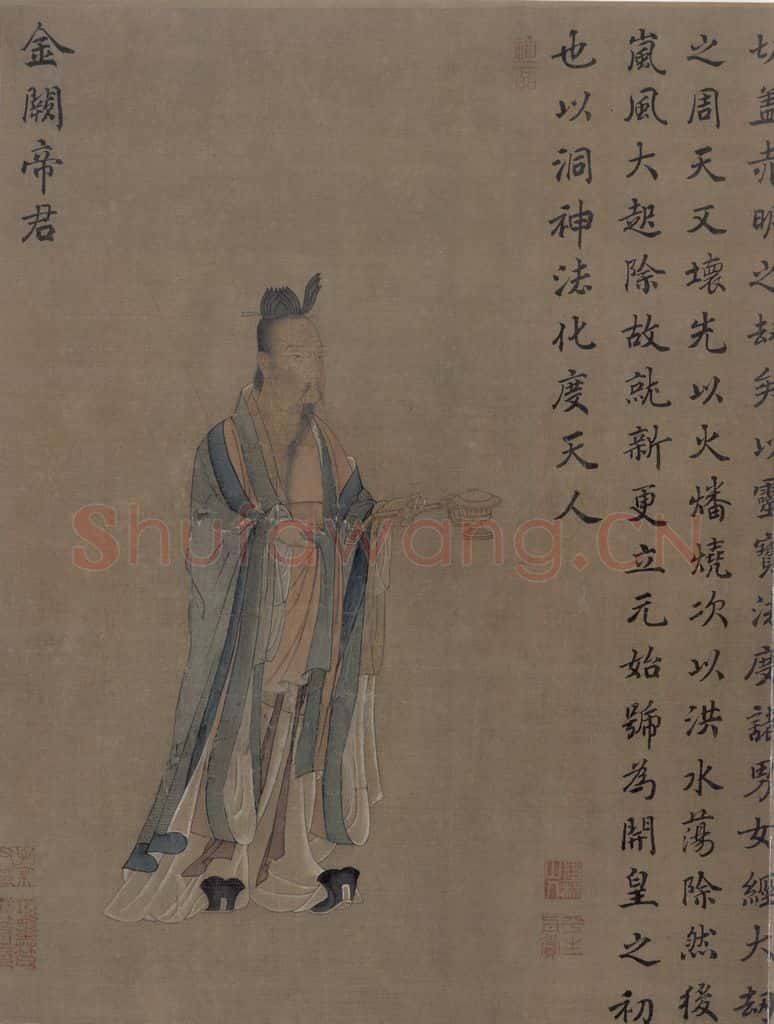 盖赤明之劫矣以靈寶法度諸男女經大劫
之周天又壞先以火燔燒次以洪水蕩除然後
嵐風大起除故就新更立元始號為開皇之初
也以洞神法化度天人
金闕帝君
Shufawang.CN